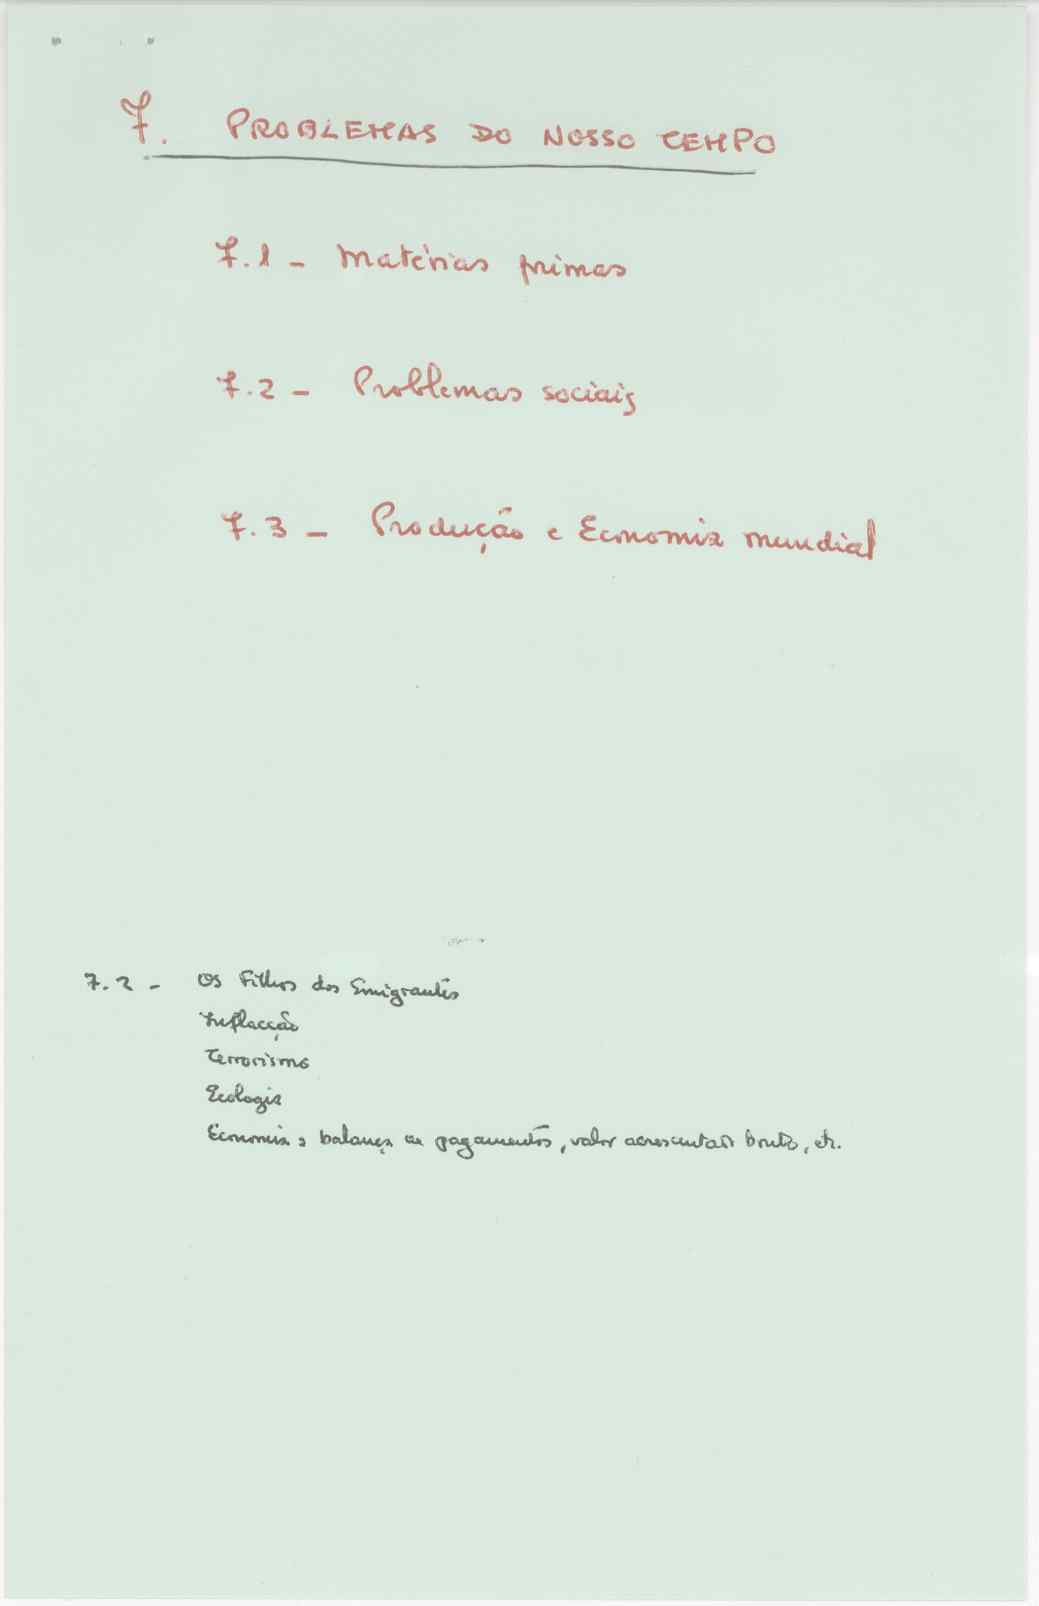 7. PROBLEMAS DO NOSSO TEMPO
7.1 - Matérias primas
7.2 - Problemas sociais
7.3 - Produção e Economia mundial
7.2 - Os Filhos dos Emigrantes
Inflacção
Terrorismo
Ecologia
Economia: balança de pagamentos, valor acrescentado bruto, etc.